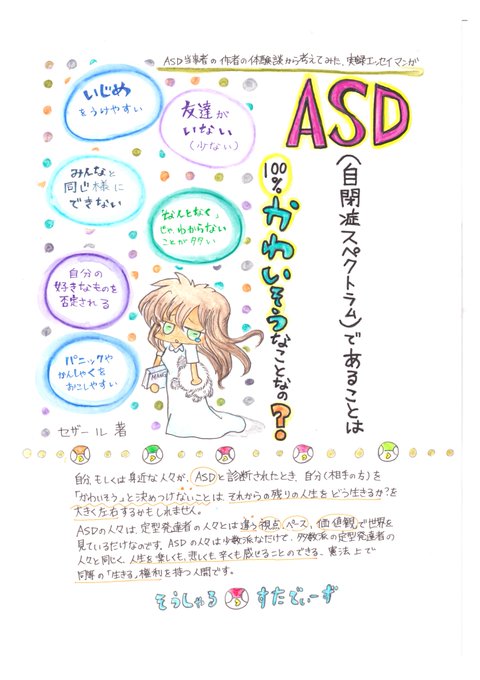 ASD当事者の作者の体験談から考えてみた、実録エッセイマンガ
ASD
(自閉症スペクトラム)であることは
100%かわいそうなことなの?
いじめ
をうけやすい
友達が
いない
(少ない)
みんなと
同じ様に
できない
「なんとなく」
じゃわからない
ことが多い
自分の
好きなものを
否定される
パニックや
かんしゃくを
おこしやすい
セザール 著
自分、もしくは身近な人々が、ASDと診断されたとき、自分(相手の方)を
「かわいそう」と決めつけないことは、それからの残りの人生をどう生きるか?を
大きく左右するかもしれません。
ASDの人々は、定型発達者の人々とは違う視点、ペース、価値観で世界を
見ているだけなのです。ASDの人々は少数派なだけで、多数派の定型発達者の
人々と同じく、人生を楽しくも、悲しくも、辛くも感せることのできる、憲法上で
同等の「生きる」権利を持つ人間です。
そうしゃる すたでぃーず